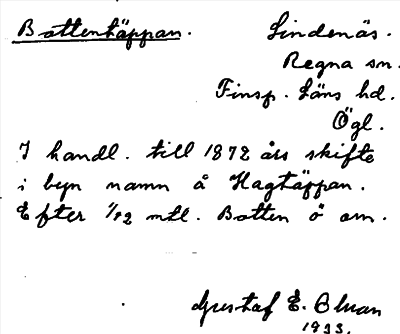 Bottentäppan.
Lindenäs.
Regna sn.
Finsp. Läns hd.
Ögl.
I handl. till 1872 års skifte
i byn namn å Hagtäppan.
Efter 1/12 mtl. Botten ö om.
Gustaf E. Olsson
1933.